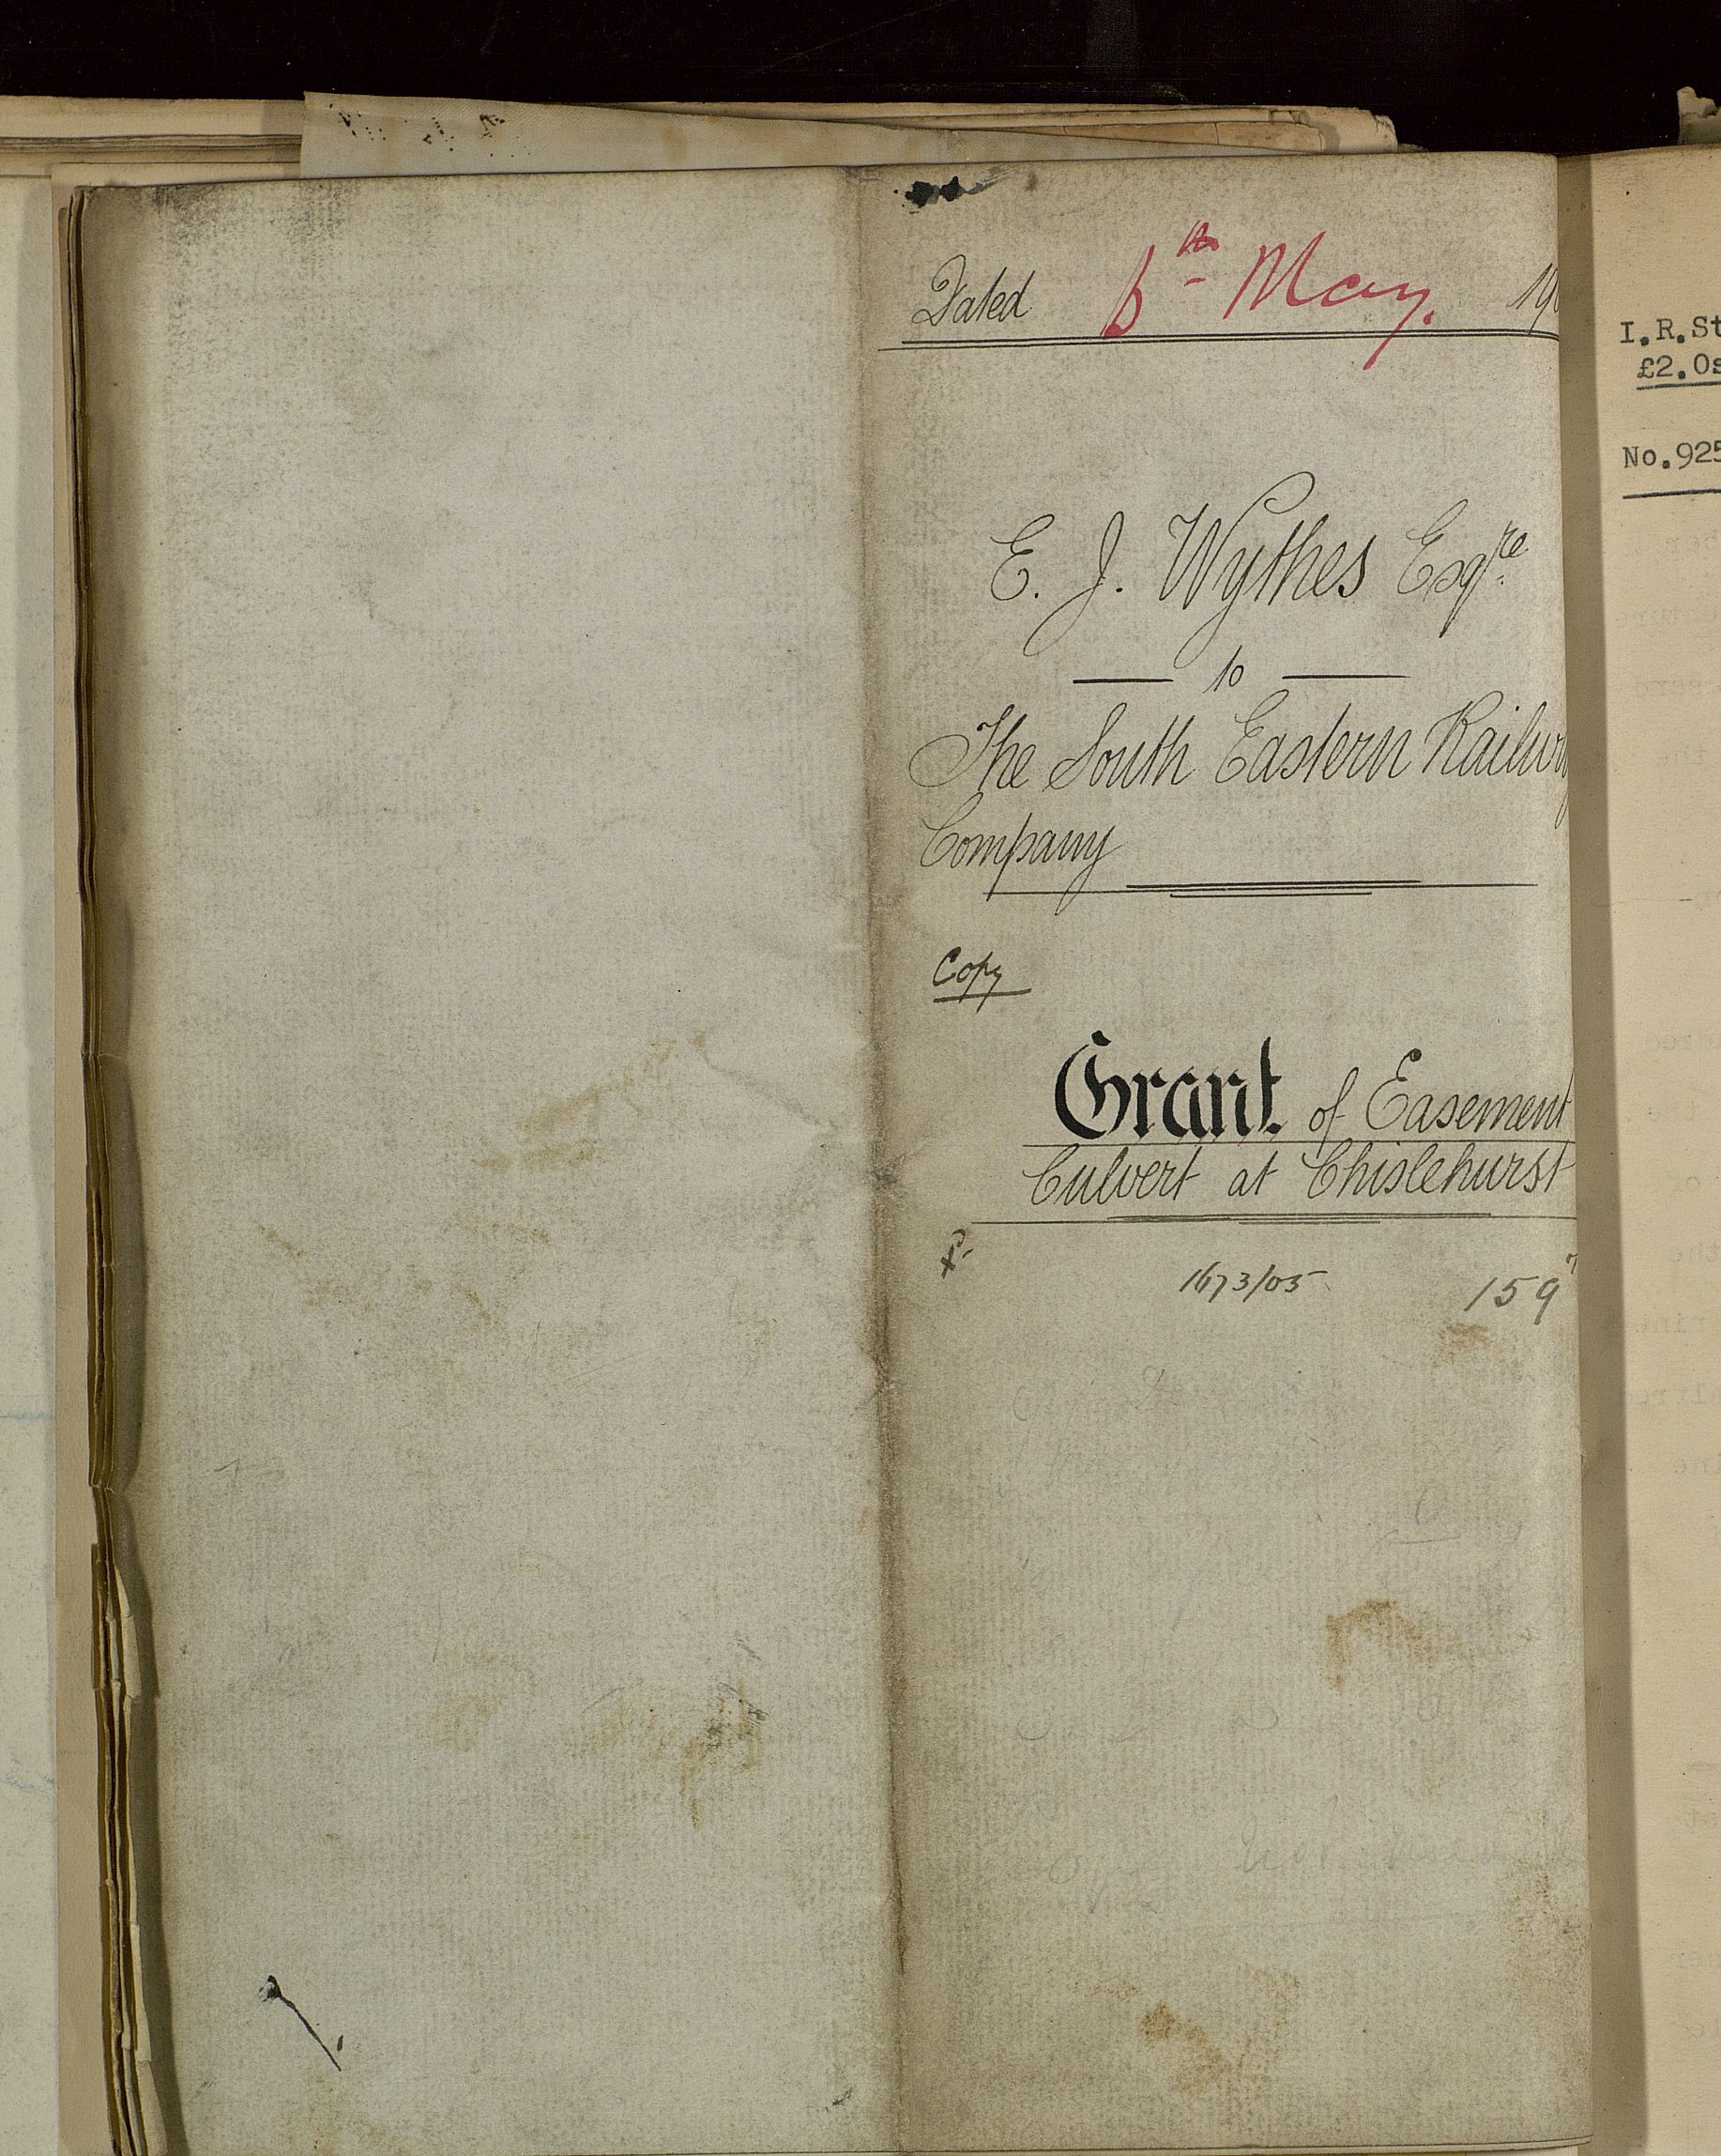 Dated 5th May. 190
E. J. Wythes Esqre
to
The South Eastern Railway
Company
Copy
Grant of Easement
Culvert at Chislehurst
1673/05 159
I.R.St
£2.0s
No.925